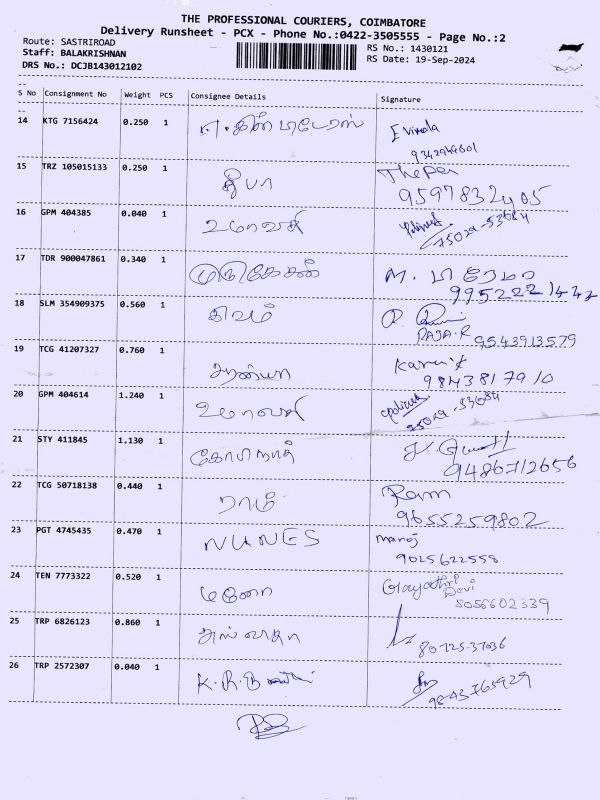 THE PROFESSIONAL COURIERS, COIMBATORE
Delivery Runsheet - PCX - Phone No.:0422-3505555 - Page No.:2
Route: SASTRIROAD
RS No.: 1430121
Staff: BALAKRISHNAN
RS Date: 19-Sep-2024
DRS No.: DCJB143012102
S No Consignment No Weight PCS Consignee Details Signature
14 KTG 7156424 0.250 1
15 TRZ 105015133 0.250 1 தீபா 9597832405
16 GPM 404385 0.040 1 உமாவதி 75029-53684
17 TDR 900047861 0.340 1 முருகேசன் M.
9952221442
18 SLM 354909375 0.560 1 சிவம்
RAJA.R 9543913579
19 TCG 41207327 0.760 1 சரண்யா
9843817910
20 GPM 404614 1.240 1 உமாவதி
75029-53684
21 STY 411845 1.130 1 கோபிநாத்
9486712656
22 TCG 50718138 0.440 1 ராம் Ram
9655259802
23 PGT 4745435 0.470 1 NUNES Manoj
9025622558
24 TEN 7773322 0.520 1 Gayathri Devi
8056602339
25 TRP 6826123 0.860 1 80725-37036
26 TRP 2572307 0.040 1 K.R.B
9843765929